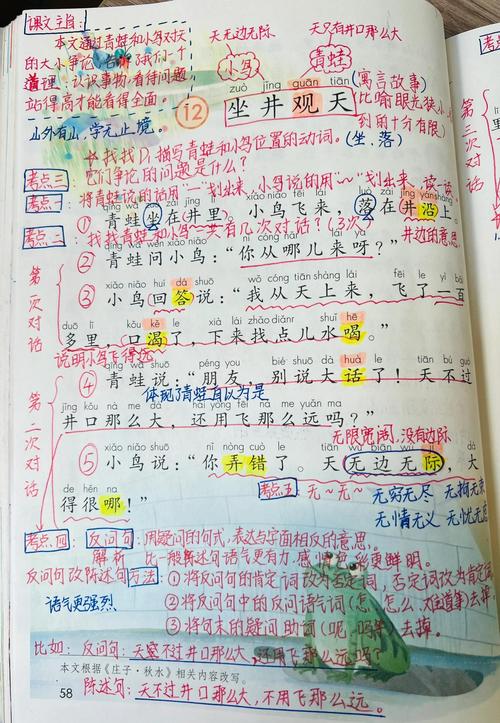 课文主旨:
本文通过青蛙和小鸟对天
的大小争论,告诉了我们一个
道理:认识事物,看待问题
站得高才能看得全面。
山外有山,学无止境。
天无边无际
天只有井口那么大
小鸟
青蛙
zuò jǐng guān tiān
12 坐井观天
(寓言故事)
比喻眼光狭小
到的十分有限)
找找描写青蛙和小鸟位置的动词。(坐、落)
考点三 它们争论的问题是什么?
考点一 将青蛙说的话用“一”划出来,小鸟说的用“~”划出来,读一读
qīng wā zuò zài jǐng lǐ xiǎo niǎo fēi lái luò zài jǐng yán shàng
①青蛙坐在井里。小鸟飞来,落在井沿上。
考点二 找找青蛙和小鸟一共有几次对话?(3次)
井边的意思
qīng wā wèn xiǎo niǎo nǐ cóng nǎr lái ya
②青蛙问小鸟:“你从哪儿来呀?”
第一次对话
xiǎo niǎo huí dá shuō wǒ cóng tiān shàng lái fēi le yì bǎi
③小鸟回答说:“我从天上来,飞了一百
duō lǐ kǒu kě le xià lái zhǎo diǎnr shuǐ hē
多里,口渴了,下来找点儿水喝。”
说明小鸟飞得远
qīng wā shuō péng you bié shuō dà huà le tiān bú guò
④青蛙说:“朋友,别说大话了!天不过
体现了青蛙自以为是
第二次对话
jǐng kǒu nà me dà hái yòng fēi nà me yuǎn ma
井口那么大,还用飞那么远吗?”
无限宽阔,没有边际
xiǎo niǎo shuō nǐ nòng cuò le tiān wú biān wú jì dà
⑤小鸟说:“你弄错了。天无边无际,大
de hěn na
得很哪!”
考点五:无~无~
无穷无尽 无拘无束
无情无义 无忧无虑
考点四:反问句:用疑问的句式,表达与字面相反的意思。
解析 比一般陈述句语气更有力,感情色彩更鲜明。
反问句改陈述句方法:①将反问句的肯定词改为否定词,否定词改为肯定词
语气更强烈
②将反问句中的反问语气词(怎、怎么、难道等)去掉
③将句末的疑问助词(呢、吗等)去掉。
比如:反问句:天不过井口那么大,还用飞那么远吗?
本文根据《庄子·秋水》相关内容改写。
58
陈述句:天不过井口那么大,不用飞那么远。